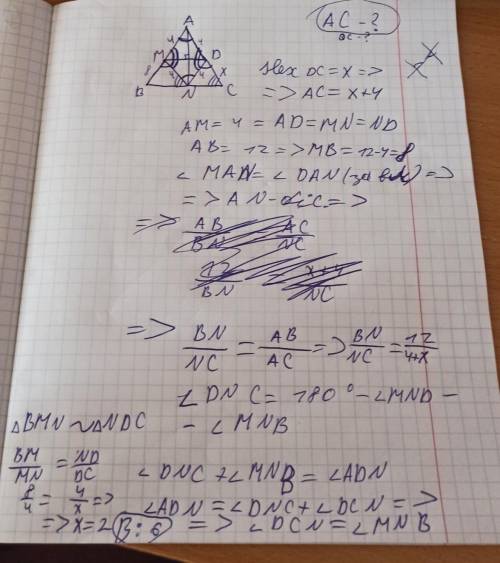 AC - ?
DC - ?
A
4 4
M D
8 4 4 x
B N C
Нех DC = x =>
=> AC = x+4
AM = 4 = AD = MN = ND
AB = 12 => MB = 12-4 = 8
∠ MAN = ∠ DAN (за вл) =>
=> AN - біс. =>
=> AB AC
BN NC
12 x+4
BN NC
=> BN/NC = AB/AC => BN/NC = 12/4+x
∠ DNC = 180° - ∠MND -
- ∠ MNB
△BMN ~ △NDC
BM/MN = ND/DC
∠ DNC + ∠MNB = ∠ADN
8/4 = 4/x =>
∠ADN = ∠DNC + ∠DCN =>
=> x = 2 В: 6
=> ∠ DCN = ∠MNB